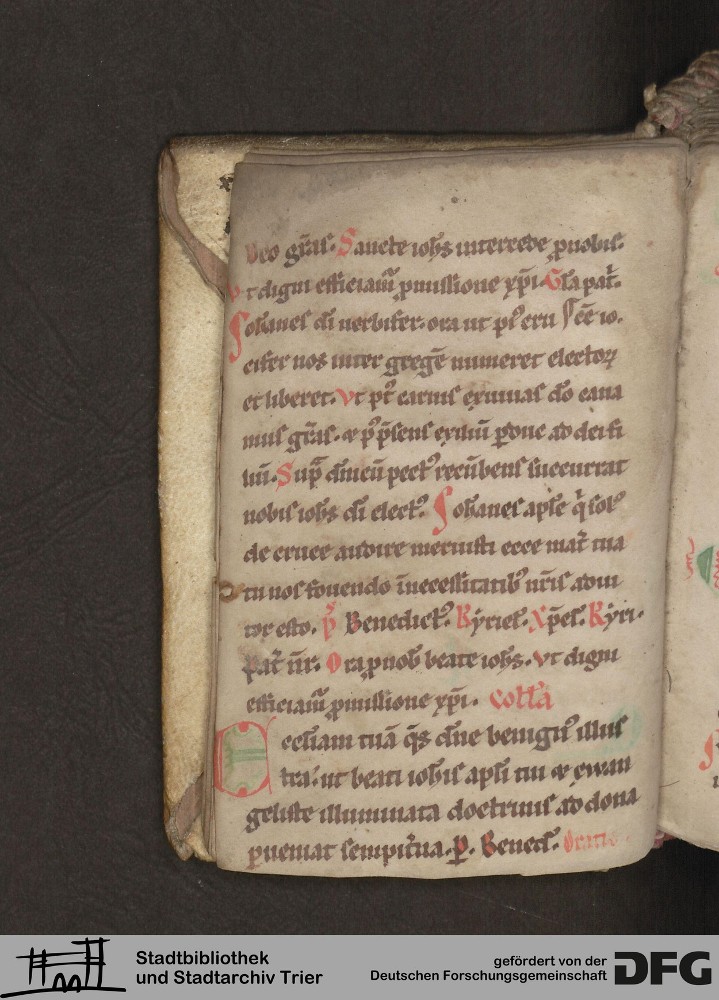 Deo gr̄as. Sancte ioh̄s intercede ꝓ nobis.
Vt digni efficiam̄ ꝓmissione xp̄i. Gl̄a pat̄.
Iohannes di uerbifer. ora ut p̄
cifer nos inter gregē numeret electoꝝ
et liberet. Vt p̄ carnis exuuias dō cana
mus gr̄as. ⁊ p̄ p̄sens exiliū
Sup̄ dn̄icū pect᷒ recūbens succurrat
nobis ioh̄s di elect᷒. Iohannes aps̄e
de cruce audire meruisti ecce mat̄ tua
tu nos fouendo īnecessitatib᷒ nr̄is adiu
tor esto. p̄ Benedict᷒. Kyriel᷒. Xp̄el᷒. Kyri.
Pat̄ nr̄. Ora ꝓ nob̄ beate ioh̄s. Vt digni
efficiam̄ ꝓmissione xp̄i. coll̄a
Ecclesiam tuā q̄s dn̄e benign᷒ illus
tra. ut beati ioh̄is apl̄i tui ⁊ ewan
geliste illuminata doctrinis. ad dona
ꝑueniat sempit̄na. ꝑ. Bened̄. Oratio
Stadtbibliothek
und Stadtarchiv Trier
gefördert von der
Deutschen Forschungsgemeinschaft
DFG